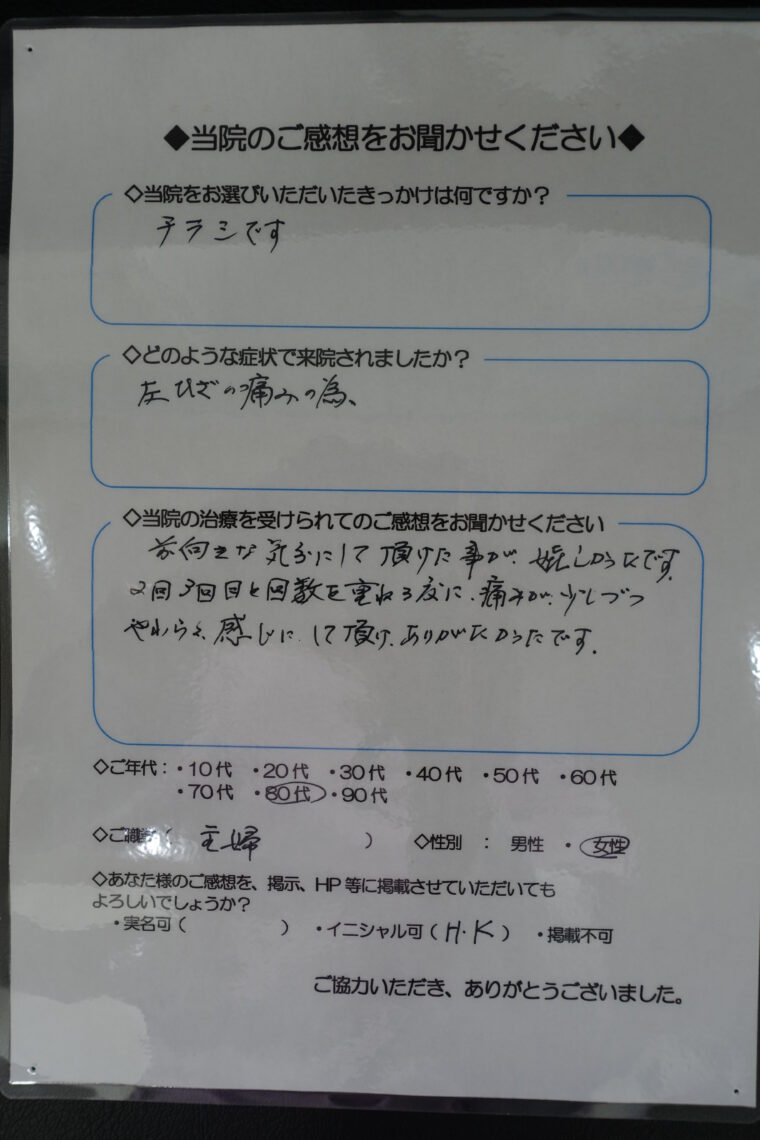 ◆当院のご感想をお聞かせください◆
◇当院をお選びいただいたきっかけは何ですか？
チラシです
◇どのような症状で来院されましたか？
左ひざの痛みの為、
◇当院の治療を受けられてのご感想をお聞かせください
前向きな気分にして頂けた事が、嬉しかったです。
2回3回目と回数を重ねる度に、痛みが、少しづつ
やわらぐ感じに、して頂け、ありがたかったです。
◇ご年代：・10代 ・20代 ・30代 ・40代 ・50代 ・60代
・70代 ・80代 ・90代
◇ご職業（ 主婦 ） ◇性別 ： 男性 ・ 女性
◇あなた様のご感想を、掲示、HP等に掲載させていただいても
よろしいでしょうか？
・実名可（ ） ・イニシャル可（ H・K ） ・掲載不可
ご協力いただき、ありがとうございました。